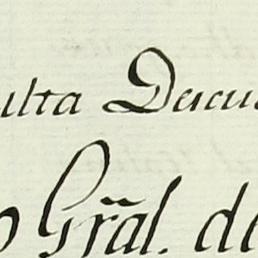 ulta Descu
o Grãl. de